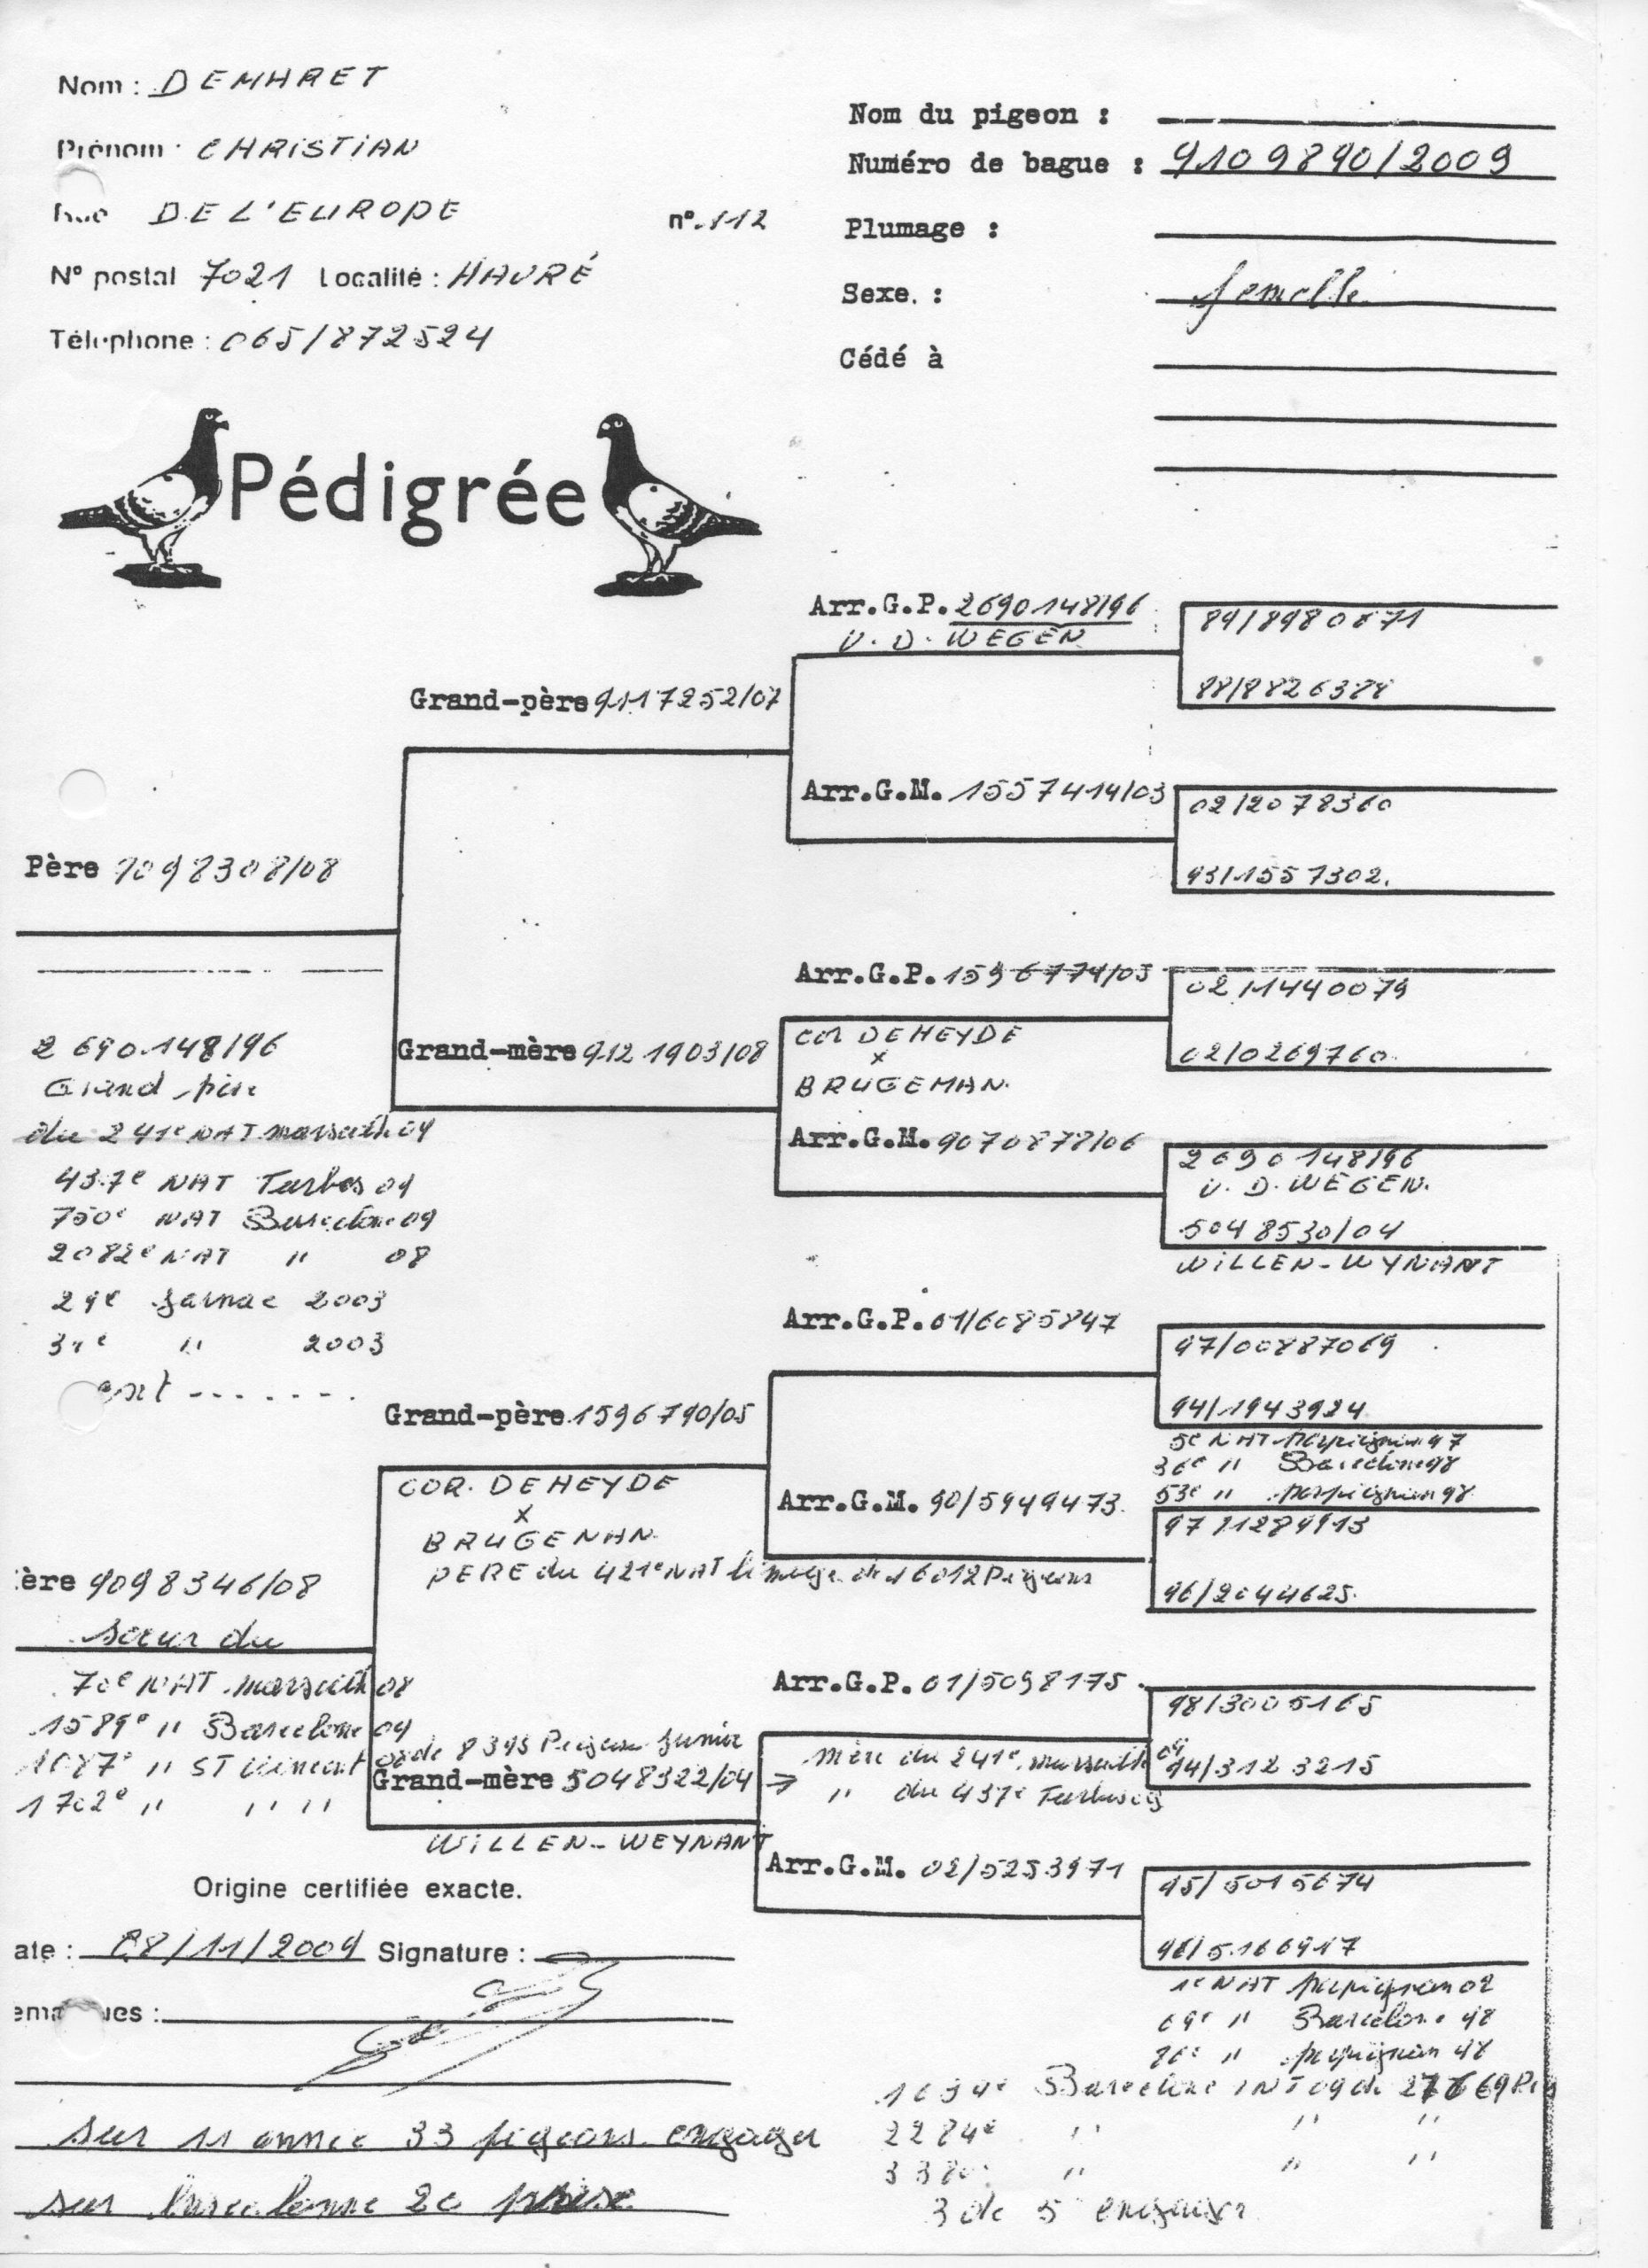 Nom : DEMHRET
Prénom : CHRISTIAN
Rue DE L'EUROPE n°. 112
N° postal 7021 Localité : HAVRÉ
Téléphone : 065/872524
Nom du pigeon :
Numéro de bague : 9109890/2009
Plumage :
Sexe. : femelle
Cédé à
Pédigrée
Arr.G.P. 2690148/96
V. D. WEGEN
88/8826388
Grand-père 9117252/07
Arr.G.M. 1557414/03
02/2078360
93/1557302.
Père 9098308/08
Arr.G.P. 1596774/05
02/1440079
Grand-mère 9121903/08
COR DEHEYDE
x
BRUGEMAN.
02/0269760
Arr.G.M. 9070878/06
2690148/96
V. D. WEGEN.
5048530/04
WILLEN-WYNANT
2690.148/96
Grand père
du 241e NAT marseille 09
437e NAT Tarbes 09
750e NAT Barcelone 09
2082e NAT " 08
29e Jarnac 2003
" 2003
ext -------.
Arr.G.P. 01/6085847
97/00887069
94/1943924
5e NAT perpignan 97
36e " Barcelone 98
53e " perpignan 98
Grand-père 1596790/05
COR. DEHEYDE
x
BRUGEMAN.
PERE du 421e NAT limoge de 16012 Pigeons
Arr.G.M. 90/5949473.
97/1289913
96/2044625.
ère 9098346/08
soeur du
70e NAT. marseille 08
1589e " Barcelone 09
1087e " ST Vincent 08 de 8395 Pigeons Junior
1702e " " "
Arr.G.P. 01/5098175
98/3005165
Grand-mère 5048322/04 →
mère du 241e marseille 09
" du 437e Tarbes 09
94/3123215
WILLEN-WEYNANT
Arr.G.M. 02/5253971
95/5015674
96/5166917
1e NAT perpignan 02
69e " Barcelone 98
" perpignan 98
1639e Barcelone INT 09 de 27669 Pig
2284e " " "
" " "
3 de 5 engager
Origine certifiée exacte.
ate : 08/11/2009 Signature :
ema ues :
sur 11 année 33 pigeons engager
sur barcelonne 20 prise